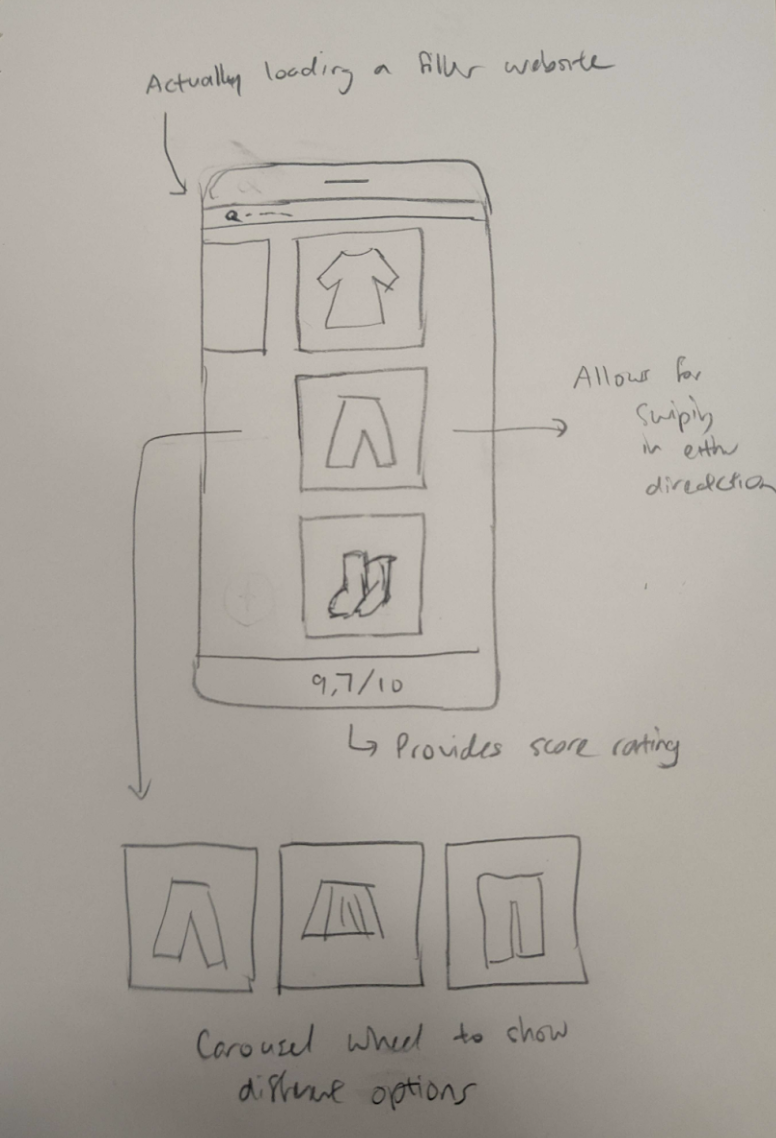 Actually loading a filler website
Allows for
swiping
in either
diredction
9,7/10
Provides score rating
Carousel wheel to show
options